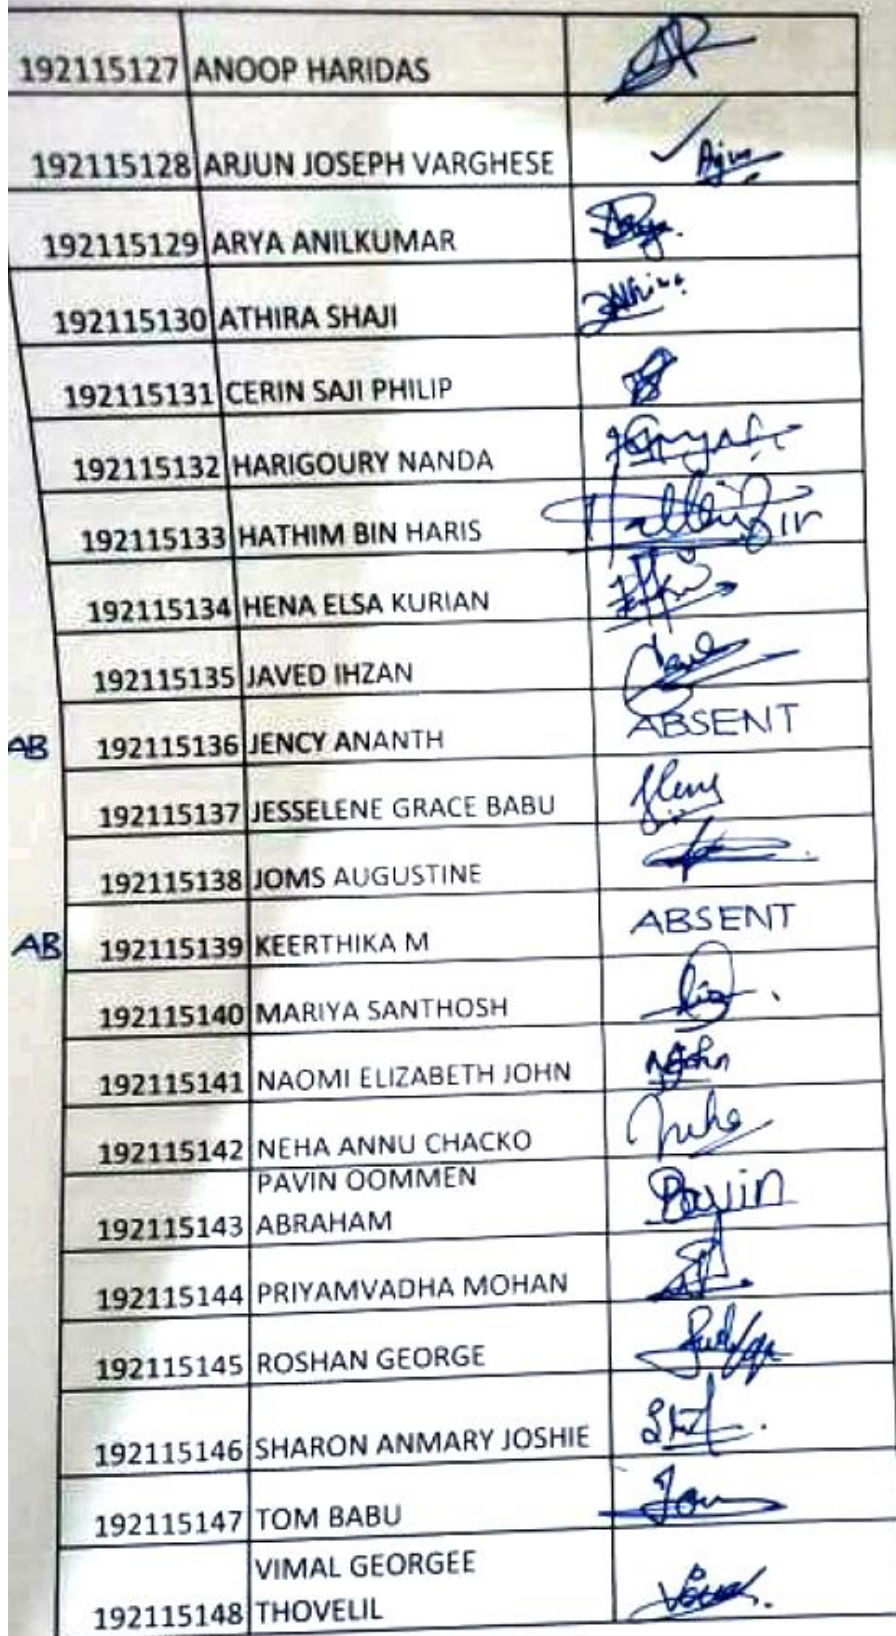 192115127 ANOOP HARIDAS
192115128 ARJUN JOSEPH VARGHESE
192115129 ARYA ANILKUMAR
192115130 ATHIRA SHAJI
192115131 CERIN SAJI PHILIP
192115132 HARIGOURY NANDA
192115133 HATHIM BIN HARIS
192115134 HENA ELSA KURIAN
192115135 JAVED IHZAN
AB 192115136 JENCY ANANTH ABSENT
192115137 JESSELENE GRACE BABU
192115138 JOMS AUGUSTINE
AB 192115139 KEERTHIKA M ABSENT
192115140 MARIYA SANTHOSH
192115141 NAOMI ELIZABETH JOHN
192115142 NEHA ANNU CHACKO
PAVIN OOMMEN
192115143 ABRAHAM Pavin
192115144 PRIYAMVADHA MOHAN
192115145 ROSHAN GEORGE
192115146 SHARON ANMARY JOSHIE
192115147 TOM BABU
VIMAL GEORGEE
192115148 THOVELIL